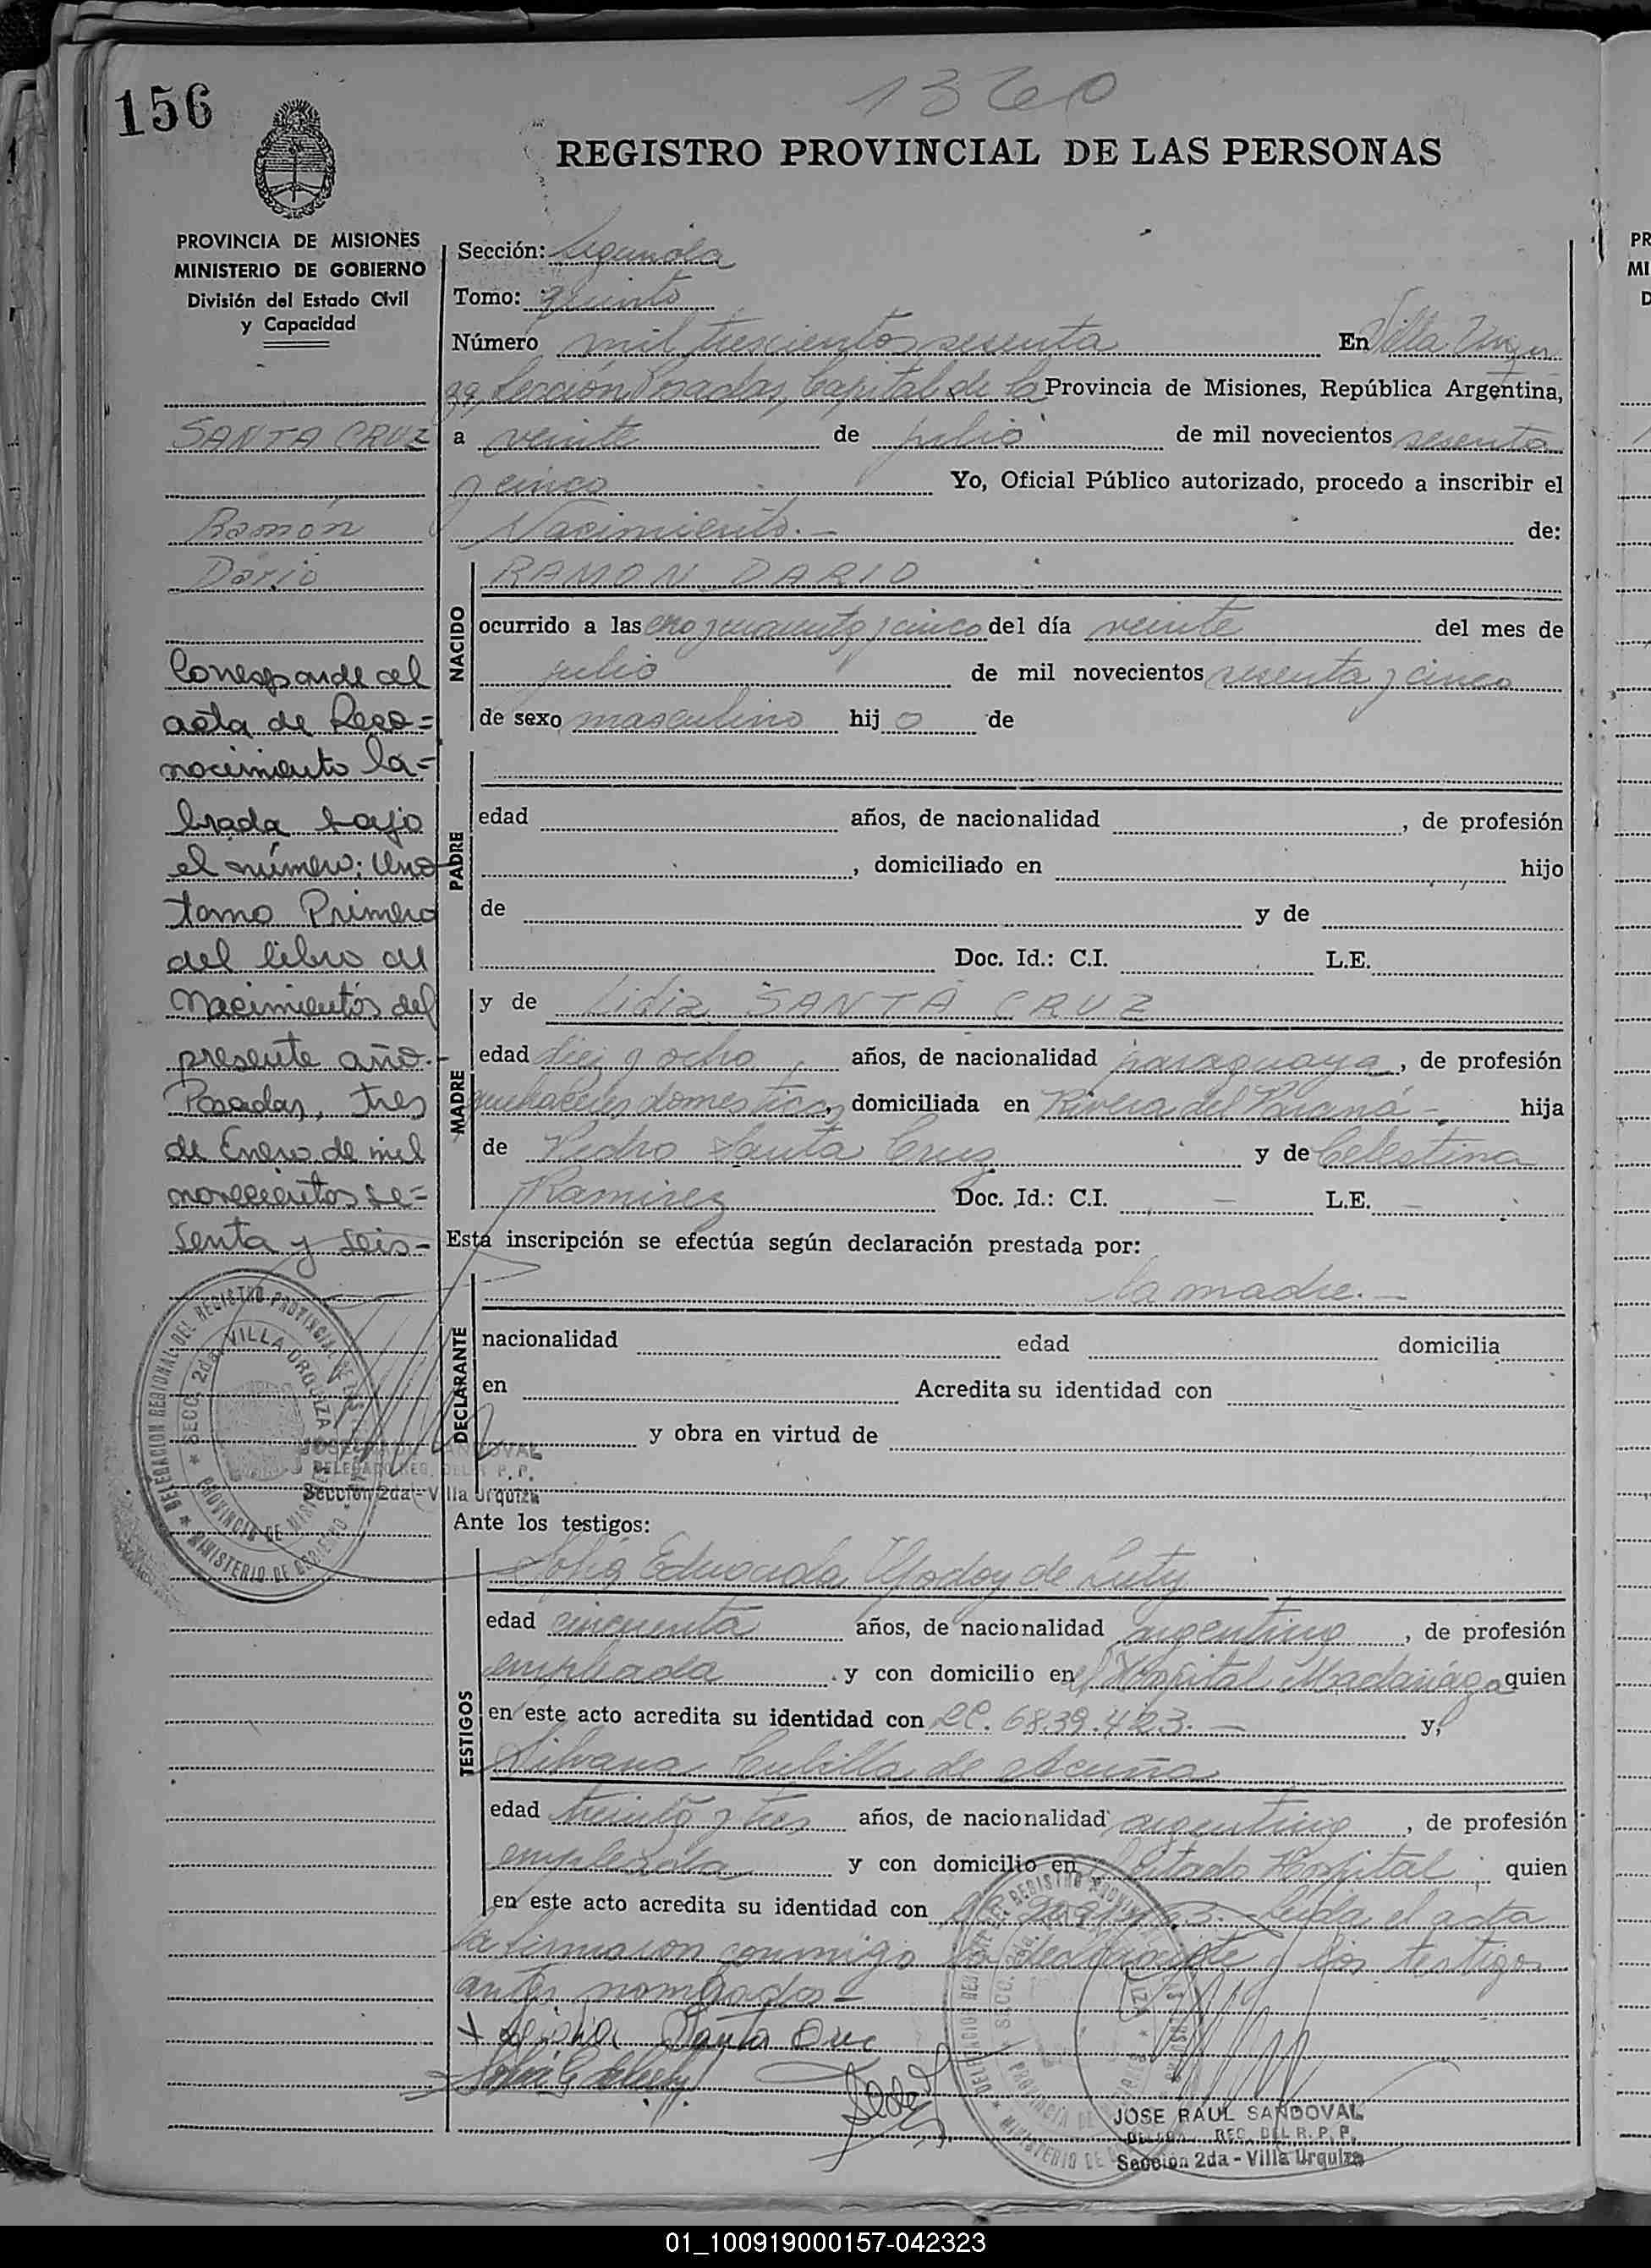 156
1360
REGISTRO PROVINCIAL DE LAS PERSONAS
PROVINCIA DE MISIONES
MINISTERIO DE GOBIERNO
División del Estado Civil
y Capacidad
SANTA CRUZ
Ramón
Dario
Corresponde al
acta de Reco=
nocimiento la=
brada bajo
el número: Uno
tomo Primero
del libro de
Nacimientos del
presente año.-
Posadas, tres
de Enero de mil
novecientos se=
senta y seis-
Sección: Segunda
Tomo: quinto
Número mil trescientos sesenta En Villa Urqui
za, Sección Posadas, Capital de la Provincia de Misiones, República Argentina,
a veinte de julio de mil novecientos sesenta
y cinco Yo, Oficial Público autorizado, procedo a inscribir el
Nacimiento.- de:
NACIDO
RAMON DARIO
ocurrido a las cero y cincuenta y cinco del día veinte del mes de
julio de mil novecientos sesenta y cinco
de sexo masculino hijo de
PADRE
edad años, de nacionalidad , de profesión
, domiciliado en hijo
de y de
Doc. Id.: C.I. L.E.
MADRE
y de Lidia SANTA CRUZ
edad diez y ocho años, de nacionalidad paraguaya, de profesión
quehaceres domesticos, domiciliada en Rivera del Paraná - hija
de Pedro Santa Cruz y de Celestina
Ramirez Doc. Id.: C.I. - L.E. -
Esta inscripción se efectúa según declaración prestada por:
DECLARANTE
la madre.-
nacionalidad edad domicilia
en Acredita su identidad con
y obra en virtud de
DELEGACION REGIONAL DEL REGISTRO PROVINCIAL DE LAS
SECC. 2da. VILLA URQUIZA
PROVINCIA DE MISIONES
MINISTERIO DE GOBIERNO
JOSE RAUL SANDOVAL
DELEGADO REG. DEL R. P. P.
Sección 2da - Villa Urquiza
Ante los testigos:
TESTIGOS
Sofia Eduarda Godoy de Luty
edad cincuenta años, de nacionalidad argentina, de profesión
empleada y con domicilio en el Hospital Madariaga quien
en este acto acredita su identidad con LC. 6839.423.- y,
Silvana Cubilla de Acuña
edad treinta y tres años, de nacionalidad argentina, de profesión
empleada y con domicilio en el citado Hospital, quien
en este acto acredita su identidad con Leida el acta
la firmaron conmigo la declarante y los testigos
antes nombrados-
Santa Cruz
JOSE RAUL SANDOVAL
REG. DEL R. P. P.
Sección 2da - Villa Urquiza
01_100919000157-042323